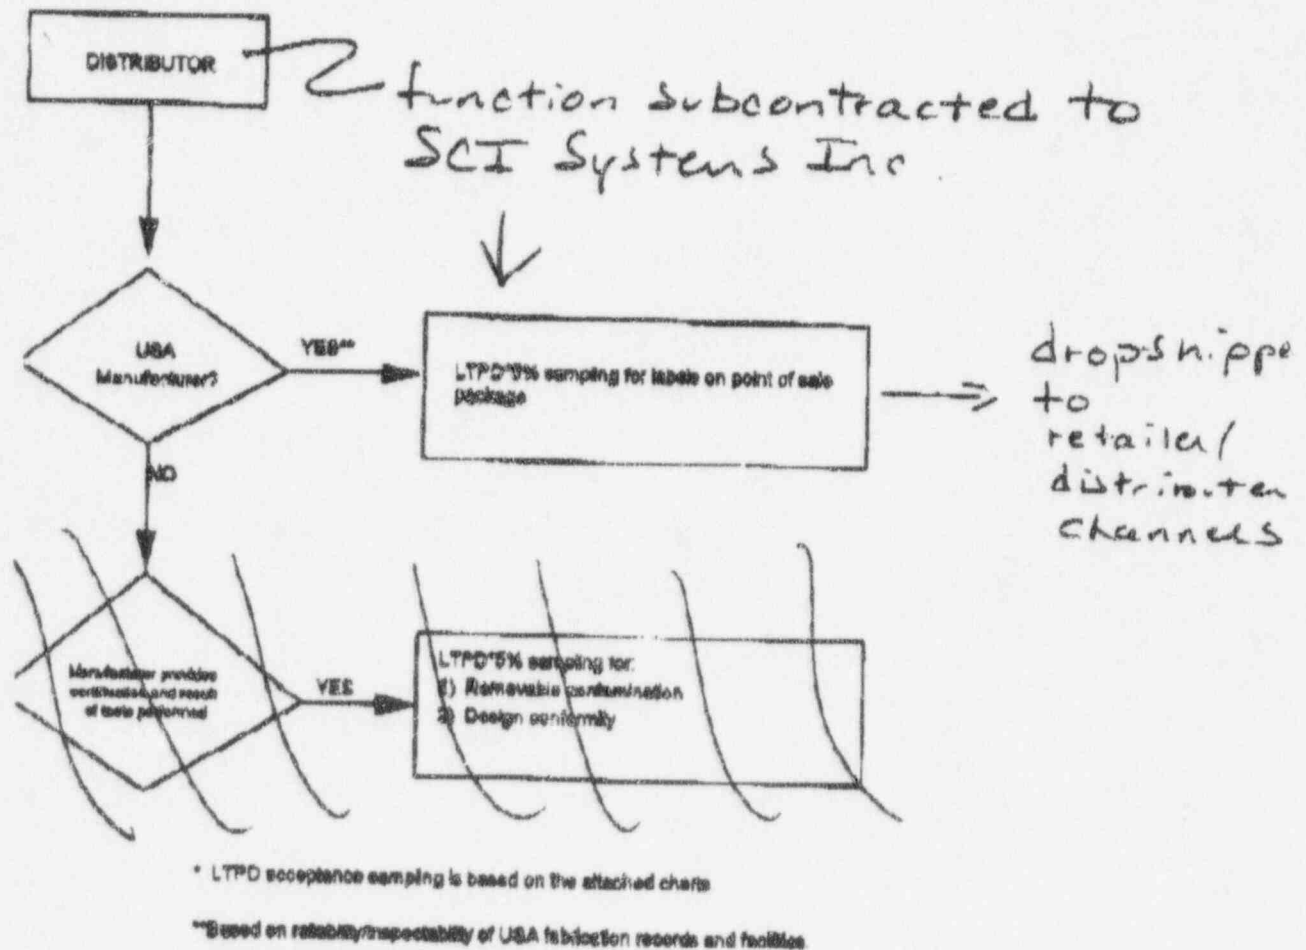 DISTRIBUTOR
function subcontracted to
SCI Systems Inc
USA
Manufacturer?
YES**
LTPD*5% sampling for labels on point of sale
package
dropshippe
to
retailer/
channels
NO
Manufacturer provides
certification and result
of tests performed
YES
LTPD*5% sampling for:
1) Removable contamination
2) Design conformity
* LTPD acceptance sampling is based on the attached charts
**Based on reliability/inspectability of USA fabrication records and facilities.